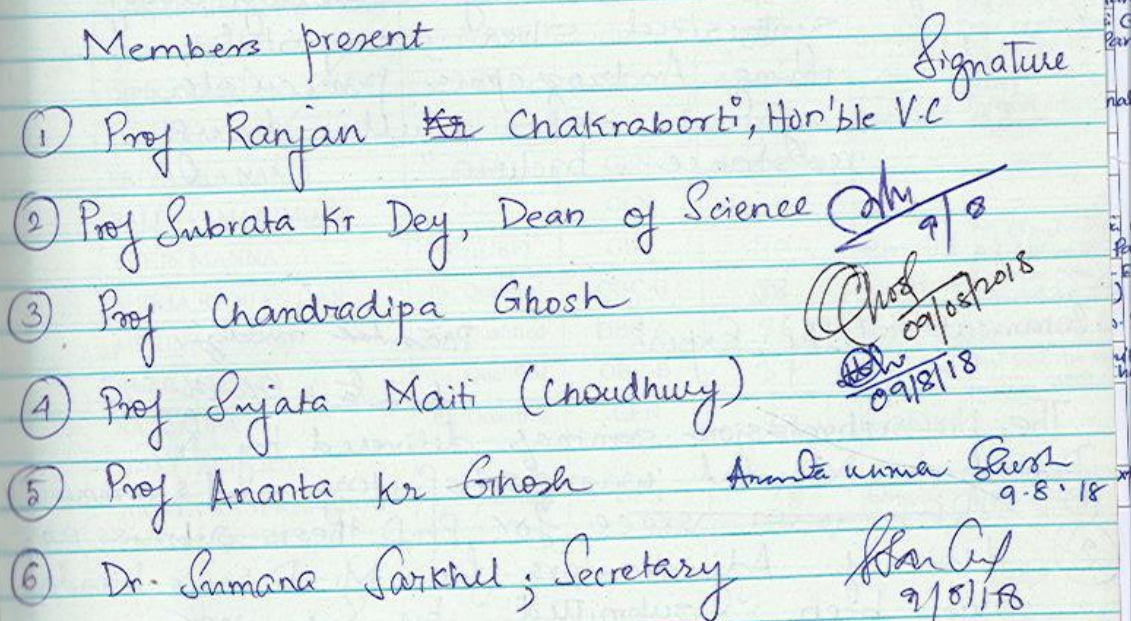 Members present
Signature
① Prof Ranjan Chakraborti, Hon'ble V.C
② Prof Subrata Kr Dey, Dean of Science
9/8
③ Prof Chandradipa Ghosh
Ghosh
09/08/2018
④ Prof Sujata Maiti (Choudhury)
09/8/18
⑤ Prof Ananta Kr Ghosh Ananta Ghosh
9.8.18
⑥ Dr. Sumana Sarkhel ; Secretary
9/8/18